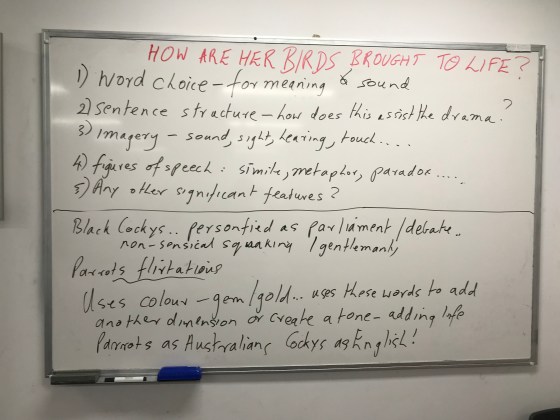 HOW ARE HER BIRDS BROUGHT TO LIFE?
1) Word choice - for meaning & sound
2) Sentence structure - how does this assist the drama.?
3) Imagery - sound, sight, hearing, touch....
4) figures of speech: simile, metaphor, paradox.....
5) Any other significant features?
Black Cockys.. personfied as parliament/debate..
non-sensical squaking /gentlemanly
Parrots flirtatious
Uses colour - gem/gold... uses these words to add
another dimension or create a tone - adding life
Parrots as Australians, Cockys as English!